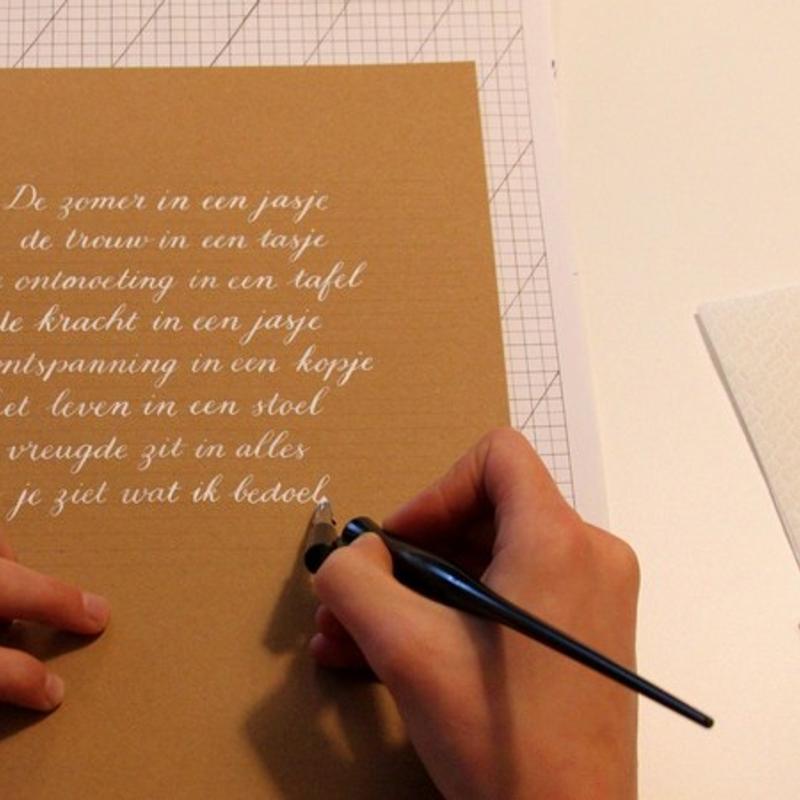 De zomer in een jasje
de trouw in een tasje
ontmoeting in een tafel
de kracht in een jasje
ontspanning in een kopje
het leven in een stoel
vreugde zit in alles
je ziet wat ik bedoel